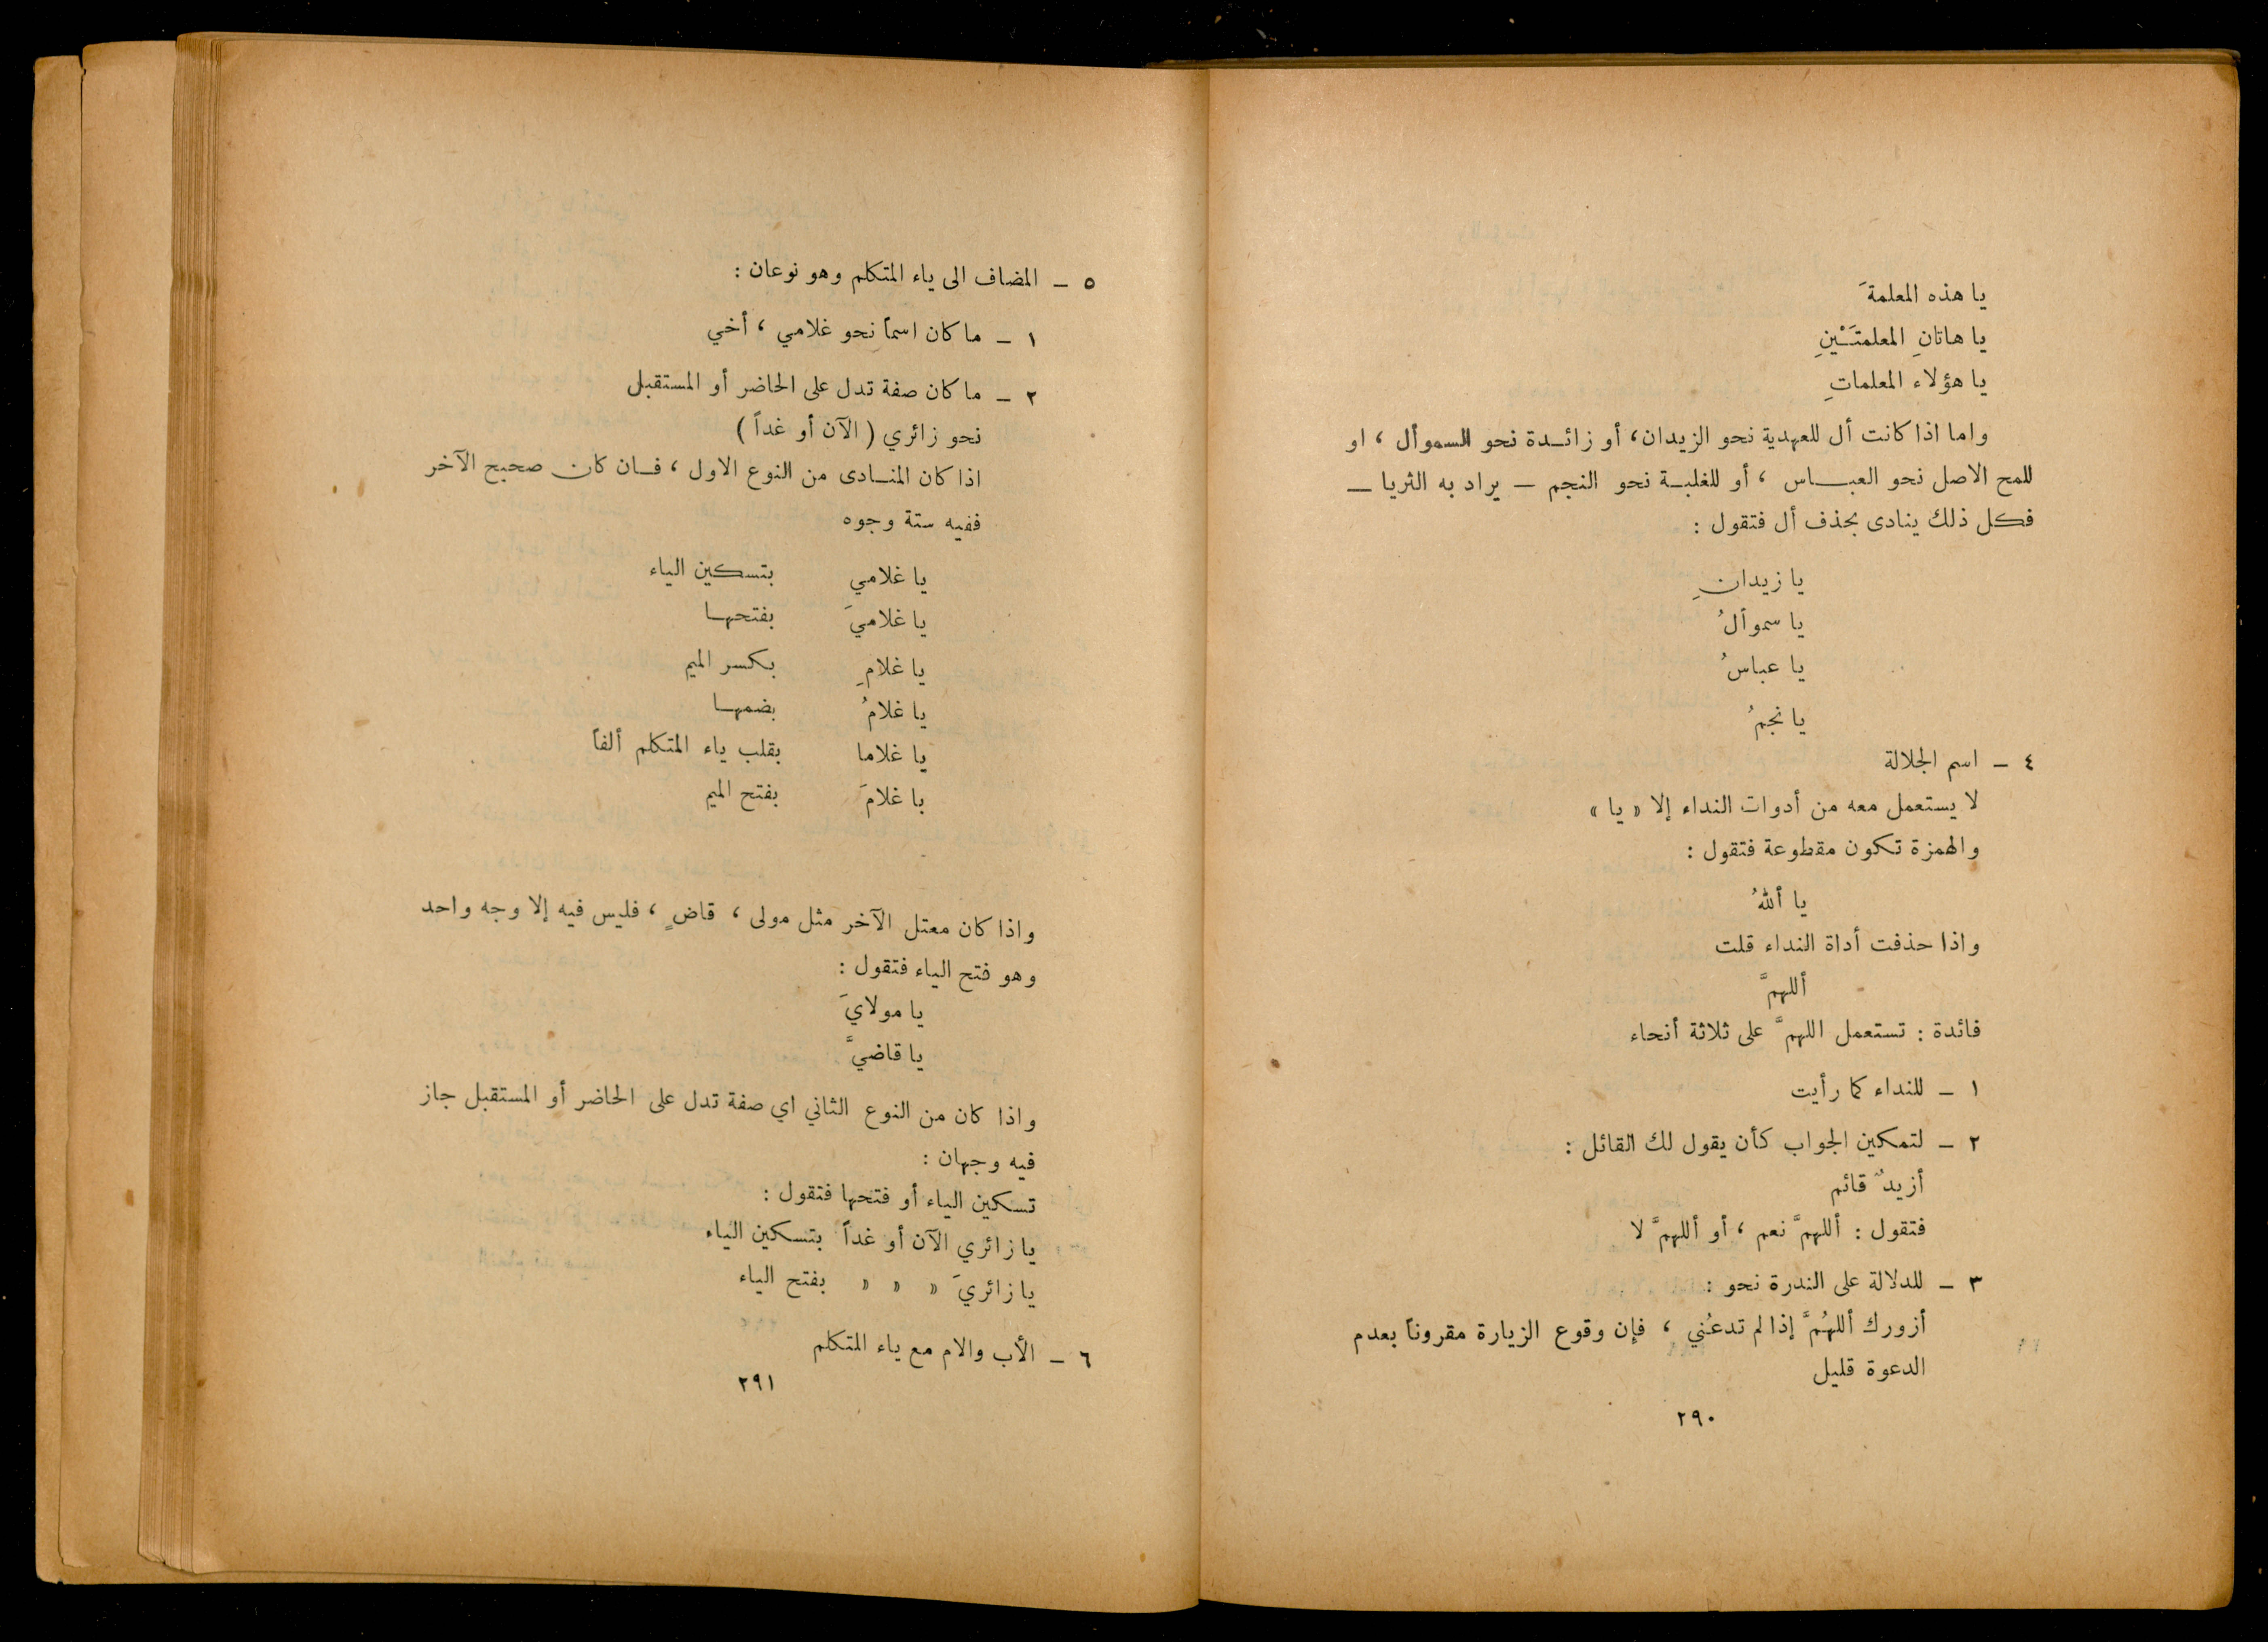 يا هذه المعلمةَ
يا هاتانِ المعلمتَيْنِ
يا هؤلاء المعلماتِ
واما اذا كانت أل للعهدية نحو الزيدان، أو زائدة نحو السموأل، او
للمح الاصل نحو العباس، أو للغلبة نحو النجم – يراد به الثريا –
فكل ذلك ينادى بحذف أل فتقول :
يا زيدانِ
يا سموألُ
يا عباسُ
يا نجمُ
٤ – اسم الجلالة
لا يستعمل معه من أدوات النداء إلا « يا »
والهمزة تكون مقطوعة فتقول :
يا أللهُ
واذا حذفت أداة النداء قلت
أللهمَّ
فائدة : تستعمل اللهمَّ على ثلاثة أنحاء
١ – للنداء كما رأيت
٢ – لتمكين الجواب كأن يقول لك القائل :
أزيدٌ قائم
فتقول : أللهمَّ نعم، أو أللهمَّ لا
٣ – للدلالة على الندرة نحو :
أزورك أللهُمَّ إذا لم تدعُني، فإن وقوع الزيارة مقروناً بعدم
الدعوة قليل
٢٩٠
٥ – المضاف الى ياء المتكلم وهو نوعان :
١ – ما كان اسماً نحو غلامي، أخي
٢ – ما كان صفة تدل على الحاضر أو المستقبل
نحو زائري ( الآن أو غداً )
اذا كان المنادى من النوع الاول، فان كان صحيح الآخر
ففيه ستة وجوه
يا غلامي بتسكين الياء
يا غلاميَ بفتحها
يا غلامِ بكسر الميم
يا غلامُ بضمها
يا غلاما بقلب ياء المتكلم ألفاً
با غلامَ بفتح الميم
واذا كان معتل الآخر مثل مولى، قاضٍ، فليس فيه إلا وجه واحد
وهو فتح الياء فتقول :
يا مولايَ
يا قاضيَّ
واذا كان من النوع الثاني اي صفة تدل على الحاضر أو المستقبل جاز
فيه وجهان :
تسكين الياء أو فتحها فتقول :
يا زائري الآن أو غداً بتسكين الياء
يا زائريَ » » » بفتح الياء
٦ – الأب والام مع ياء المتكلم
٢٩١